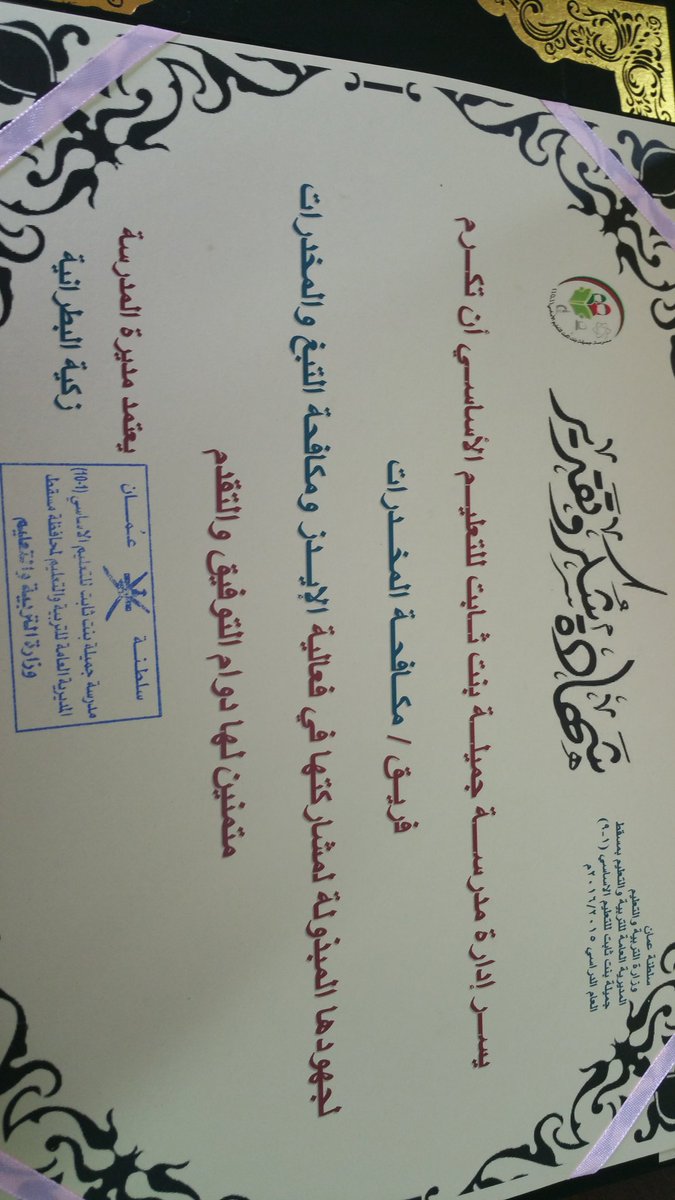 سلطنة عمان
وزارة التربية والتعليم
المديرية العامة للتربية والتعليم بمسقط
جميلة بنت ثابت للتعليم الاساسي (١-٩)
العام الدراسي ٢٠١٦/٢٠١٥م
شهادة شكر وتقدير
يسر إدارة مدرسة جميلة بنت ثابت للتعليم الأساسي أن تكرم
فريق / مكافحة المخدرات
لجهودها المبذولة لمشاركتها في فعالية الإيدز ومكافحة التبغ والمخدرات
متمنين لها دوام التوفيق والتقدم
يعتمد مديرة المدرسة
زكية البطرانية
سلطنة عمان
مدرسة جميلة بنت ثابت للتعليم الاساسي (1-10)
المديرية العامة للتربية والتعليم لحافظة مسقط
وزارة التربية والتعليم